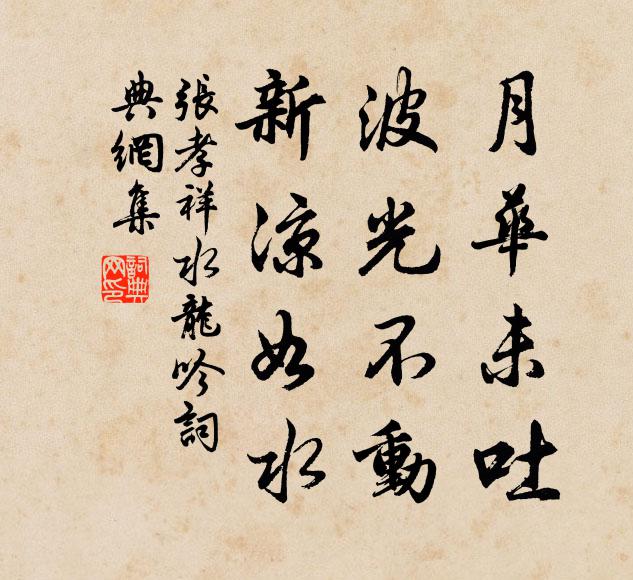 月華未吐
波光不動
新涼如水
張孝祥水龍吟詞
典網集
詞典網印